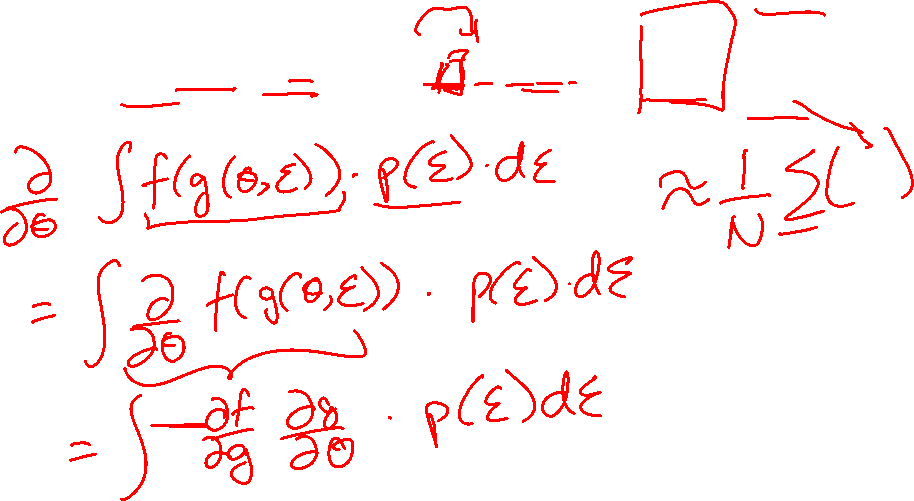 ∂/∂θ ∫ f(g(θ,ε)) · p(ε) · dε ≈ 1/N Σ( )
= ∫ ∂/∂θ f(g(θ,ε)) · p(ε) · dε
= ∫ ∂f/∂g ∂g/∂θ · p(ε) dε